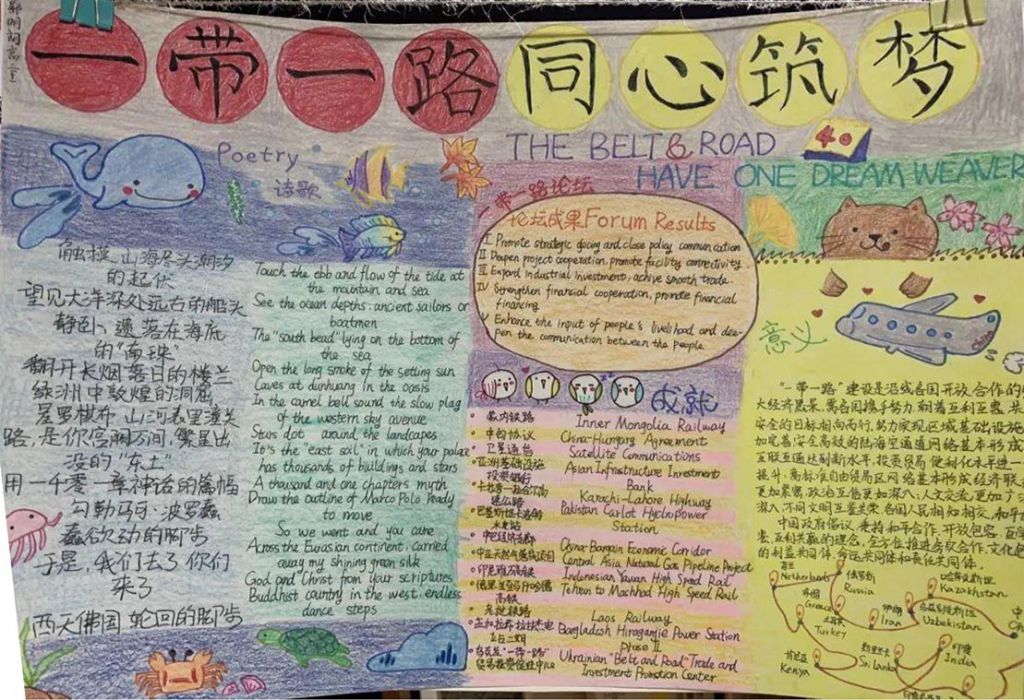 一带一路同心筑梦
THE BELT & ROAD
HAVE ONE DREAM WEAVER
40
Poetry
诗歌
触摸,山海尽头潮汐
的起伏
望见大洋深处远古的船头
静卧,遗落在海底
的"南珠"
翻开长烟落日的楼兰
绿洲中敦煌的洞窟
星罗棋布,山河表里潼关
路,是你宫阙万间,繁星出
没的"东土"
用一千零一章神话的篇幅
勾勒马可·波罗蠢
蠢欲动的脚步
于是,我们去了你们
来了
西天佛国轮回的脚步
Touch the ebb and flow of the tide at
the mountain and sea
See the ocean depths, ancient sailors or
boatmen
The "south bead" lying on the bottom of
the sea
Open the long smoke of the setting sun
Caves at dunhuang in the oasis
In the camel bell sound the slow plag
of the western sky avenue
Stars dot around the landcapes
It's the "east soil" in which your palace
has thousands of buildings and stars
A thousand and one chapters myth
Draw the outline of Marco Polo ready
to move
So we went and you came
Across the Eurasian continent, carried
away my shining green silk
God and Christ from your scriptures
Buddhist country in the west, endless
dance steps
一带一路论坛
论坛成果 Forum Results
I Promote strategic docing and close policy communication
II Deepen project cooperation, promote facility connectivity
III Expord industrial investment, achive smooth trade.
IV Strengthen financial cooperation, promote financial
financing
V Enhance the input of people's livelihood and dee-
pen the communication between the people
成就
蒙内铁路 Inner Mongolia Railway
中匈协议 China-Hungary Agreement
卫星通信 Satellite Communications
亚洲基础设施 Asian Infrastructure Investment
投资银行 Bank
Karachi-Lahore Highway
Pakistan Carlot Hydropower
水电站 Station
中巴经济走廊 China-Bangain Economic Corridor
中亚天然气管线项目 Central Asia Natural Gas Pipeline Project
印尼雅万高铁 Indonesian Yawan High Speed Rail
Tehran to Machhad High Speed Rail
高铁
老挝铁路 Laos Railway
Bangladesh Hiraganjie Power Station
站二期 Phase II
乌克兰"一带一路" Ukrainian "Belt and Road" Trade and
贸易投资促进中心 Investment Promotion Center
意义
China
"一带一路"建设是沿线各国开放合作的
大经济愿景,需各国携手努力,朝着互利互惠、共
安全的目标相向而行,努力实现区域基础设施
加完善安全高效的陆海空通道网络基本形成
互联互通达到新水平,投资贸易便利化水平进一
提升,高标准自由贸易区网络基本形成经济联
更加紧密,政治互信更加深入;人文交流更加广
深入,不同文明互鉴共荣,各国人民相知相交、和平
中国政府倡议,秉持和平合作、开放包容、互学
鉴、互利共赢的理念,全方位推进务实合作,文化包
的利益共同体,命运共同体和责任共同体。
荷兰
Netherlands
俄罗斯
Russia
哈萨克斯坦
Kazakhstan
希腊
Greece
土耳其
Turkey
伊朗
Iran
乌兹别克斯坦
Uzbekistan
肯尼亚
Kenya
斯里兰卡
Sri Lanka
印度
India